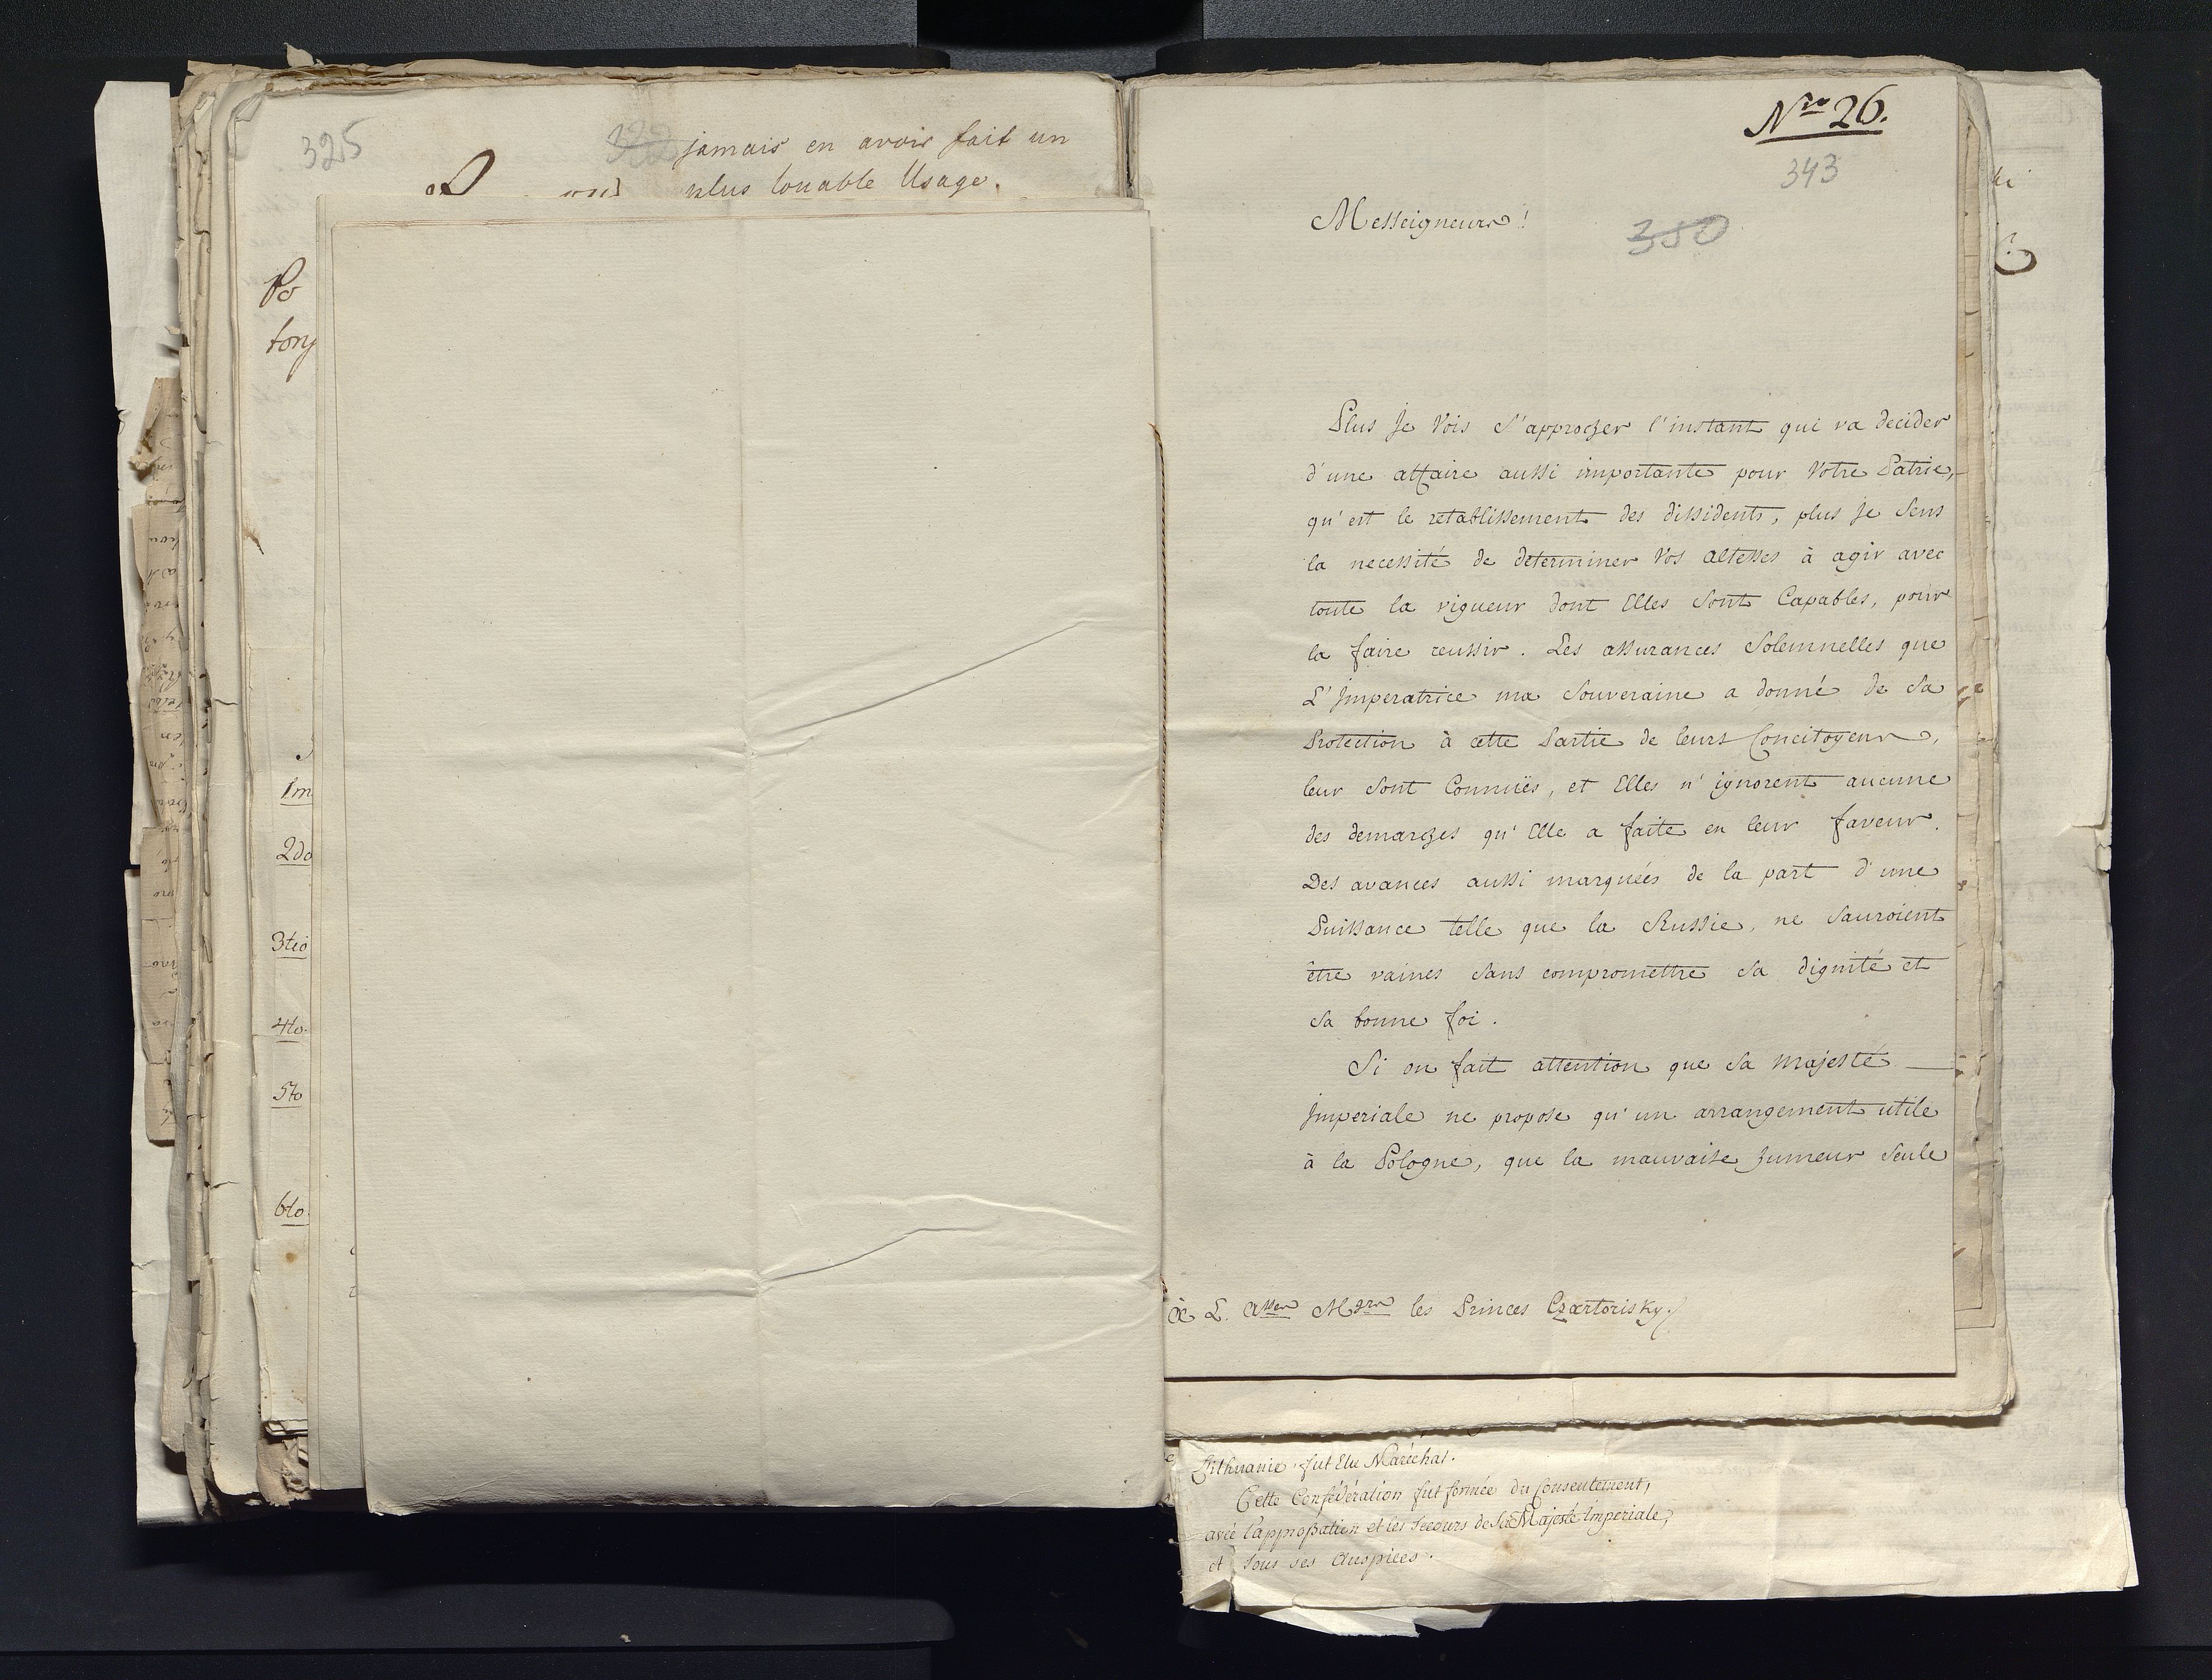 325
jamais en avoir fait un
plus louable Usage.
Po
tory
1m
2do
3tio
4to
5to
6to
Nro 26.
343
350
Messeigneurs!
Plus je Vois s'approcher l'instant qui va decider
d'une affaire aussi importante pour Votre Patrie,
qu'est le retablissement des dissidents, plus je sens
la necessité de determiner Vos Altesses à agir avec
toute la vigueur dont Elles sont Capables, pour
la faire reussir. Les assurances Solemnelles que
L'Imperatrice ma Souveraine a donné de Sa
Protection à cette Partie de leurs Concitoyens,
leur sont Connuës, et Elles n'ignorent aucune
des demarches qu'Elle a faite en leur faveur.
Des avances aussi marquées de la part d'une
Puissance telle que la Russie, ne sauroient
être vaines sans compromettre sa dignité et
sa bonne foi.
Si on fait attention que Sa Majesté
Imperiale ne propose qu'un arrangement utile
à la Pologne, que la mauvaise humeur seule
à L. Asses Mgrs les Princes Czartorisky.
Lithuanie fut Elu Maréchal.
Cette Confédération fut formée du Consentement,
avec l'approbation et les Secours de Sa Majesté Imperiale,
et sous ses Auspices.